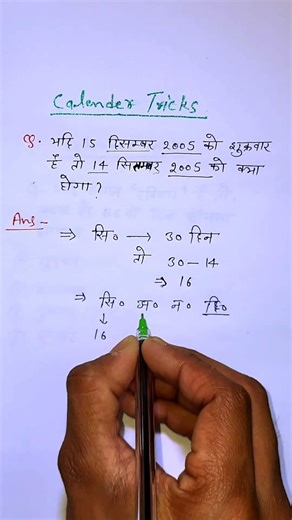 Calender Tricks
Q. यदि 15 दिसम्बर 2005 को शुक्रवार
हैं तो 14 सितम्बर 2005 को क्या
होगा ?
Ans -
⇒ सि० → 30 दिन
तो 30-14
⇒ 16
⇒ सि० अ० न० दि०
↓
16